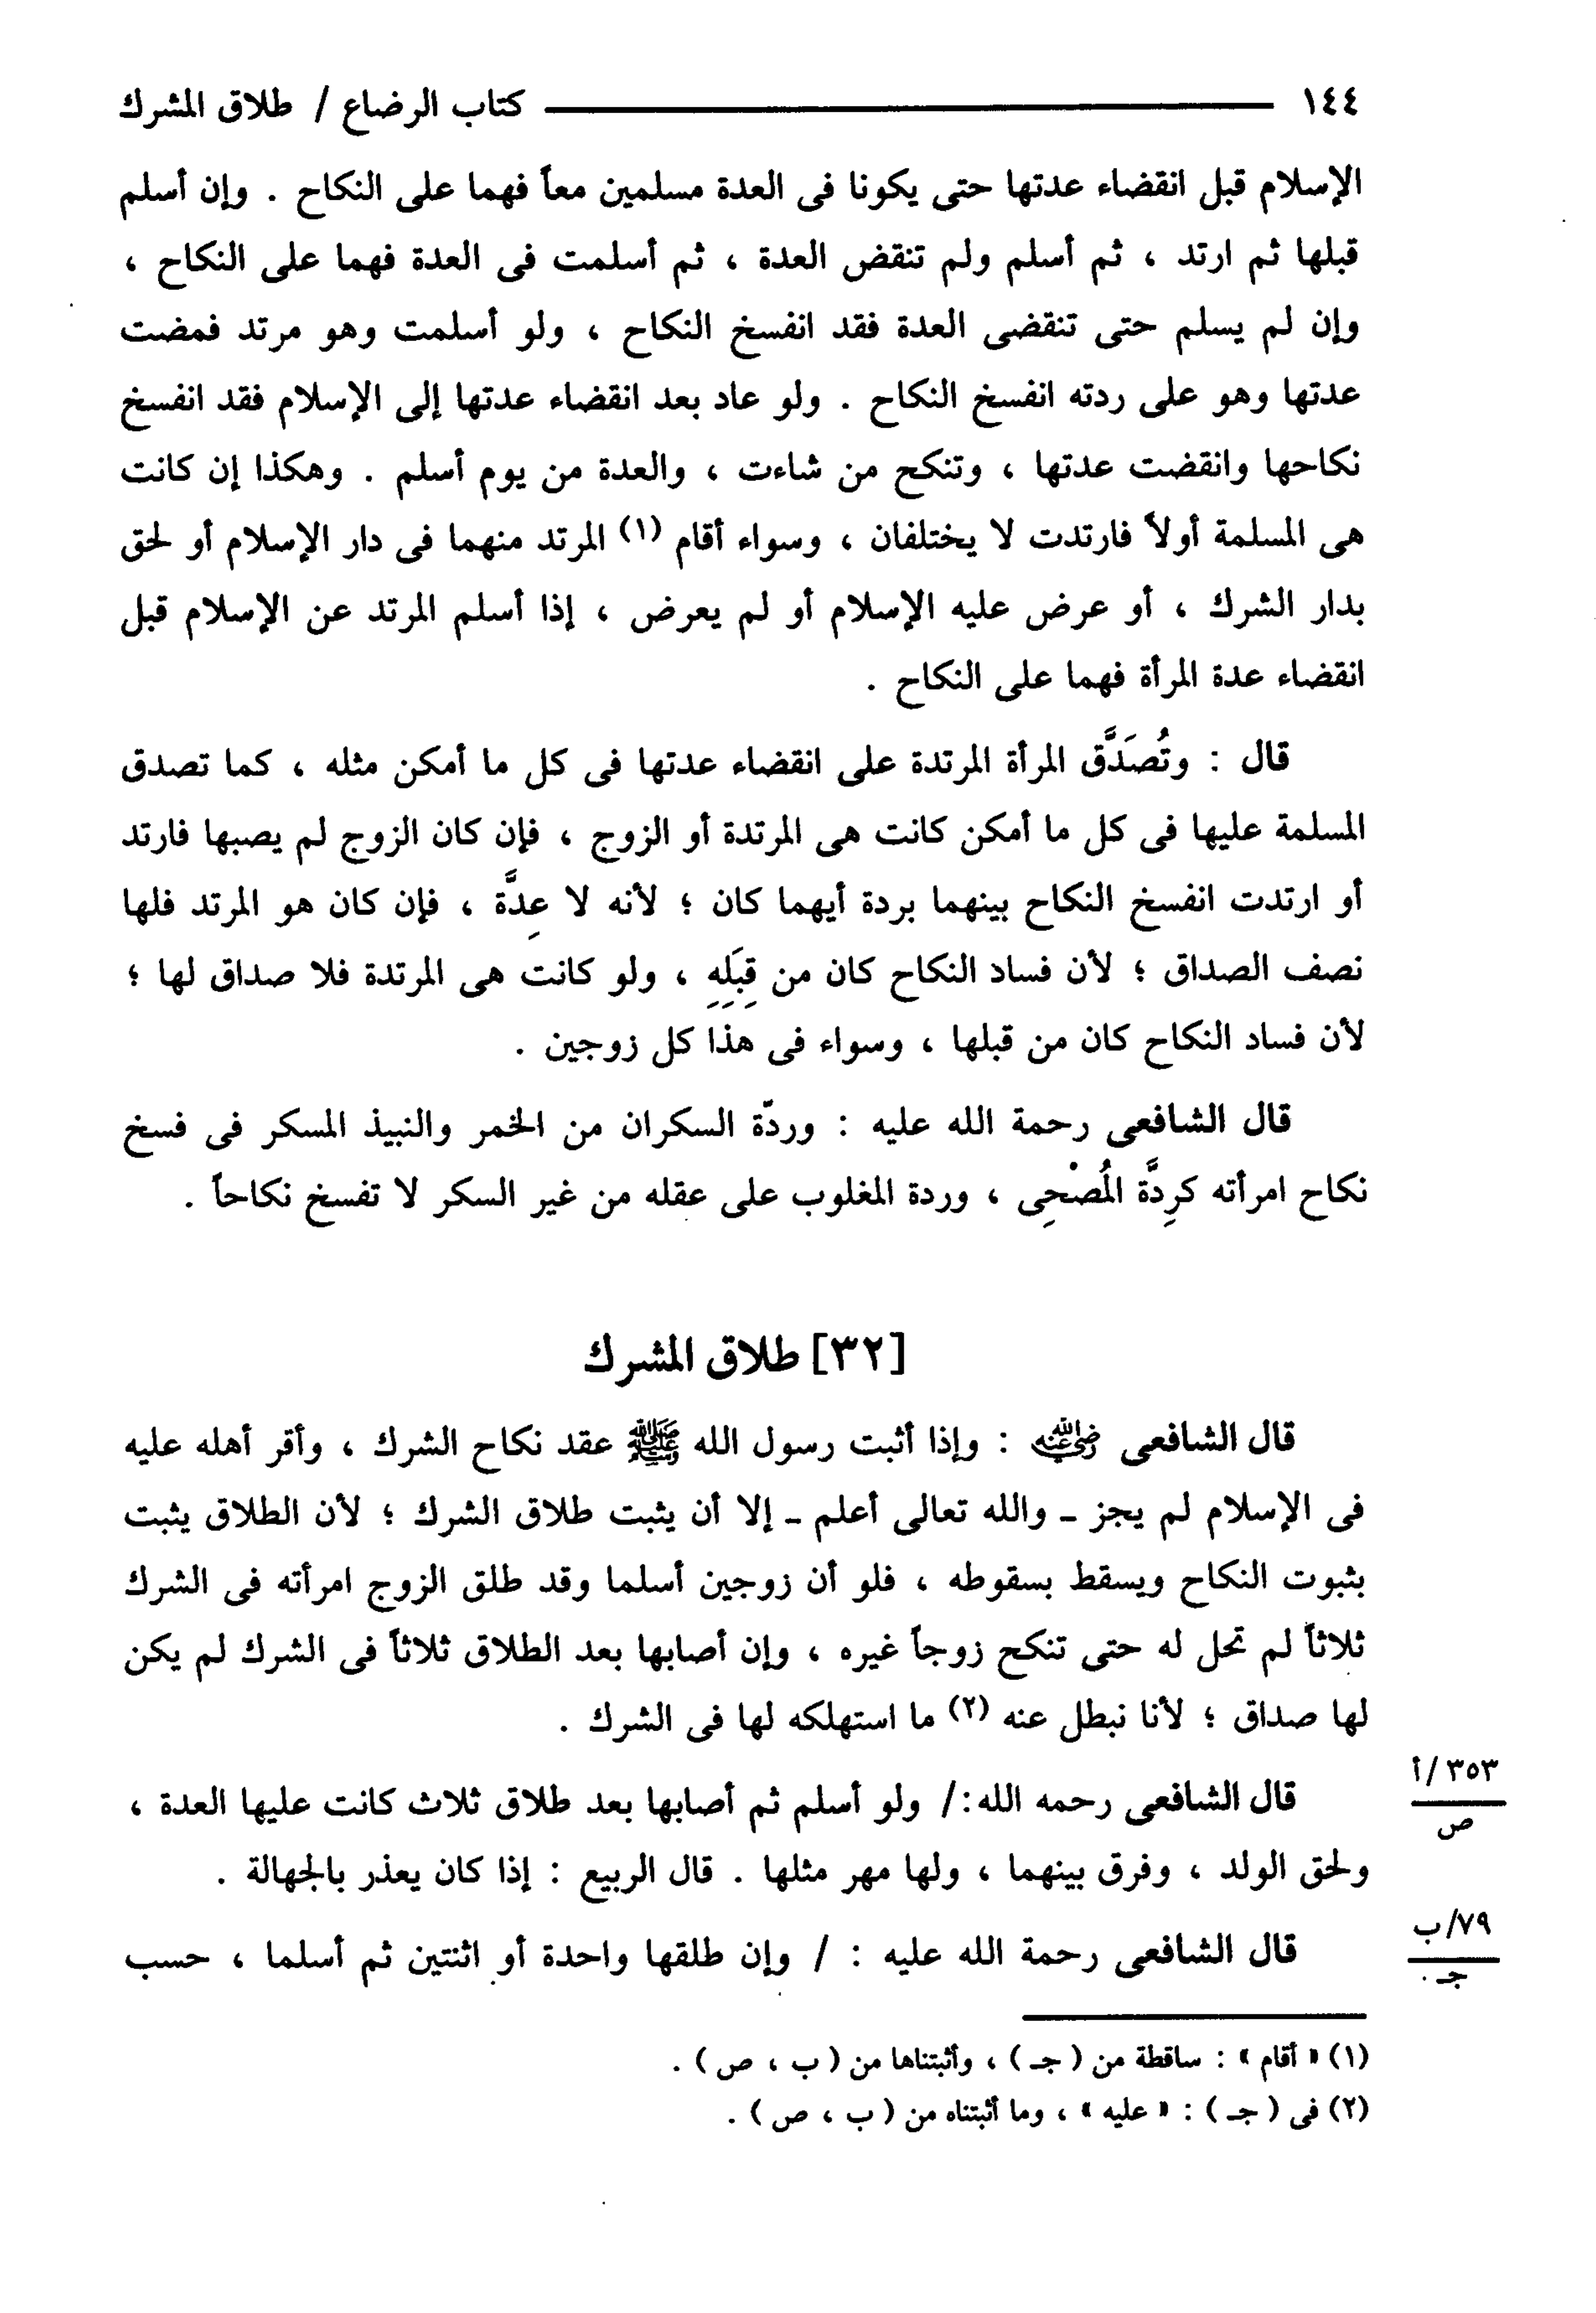 ١٤٤ كتاب الرضاع / طلاق المشرك
الإسلام قبل انقضاء عدتها حتى يكونا فى العدة مسلمين معاً فهما على النكاح . وإن أسلم
قبلها ثم ارتد ، ثم أسلم ولم تنقض العدة ، ثم أسلمت فى العدة فهما على النكاح ،
وإن لم يسلم حتى تنقضى العدة فقد انفسخ النكاح ، ولو أسلمت وهو مرتد فمضت
عدتها وهو على ردته انفسخ النكاح . ولو عاد بعد انقضاء عدتها إلى الإسلام فقد انفسخ
نكاحها وانقضت عدتها ، وتنكح من شاءت ، والعدة من يوم أسلم . وهكذا إن كانت
هى المسلمة أولاً فارتدت لا يختلفان ، وسواء أقام (١) المرتد منهما فى دار الإسلام أو لحق
بدار الشرك ، أو عرض عليه الإسلام أو لم يعرض ، إذا أسلم المرتد عن الإسلام قبل
انقضاء عدة المرأة فهما على النكاح .
قال : وتُصَدَّق المرأة المرتدة على انقضاء عدتها فى كل ما أمكن مثله ، كما تصدق
المسلمة عليها فى كل ما أمكن كانت هى المرتدة أو الزوج ، فإن كان الزوج لم يصبها فارتد
أو ارتدت انفسخ النكاح بينهما بردة أيهما كان ؛ لأنه لا عِدَّة ، فإن كان هو المرتد فلها
نصف الصداق ؛ لأن فساد النكاح كان من قِبَلِهِ ، ولو كانت هى المرتدة فلا صداق لها ؛
لأن فساد النكاح كان من قبلها ، وسواء فى هذا كل زوجين .
قال الشافعى رحمة الله عليه : وردّة السكران من الخمر والنبيذ المسكر فى فسخ
نكاح امرأته كرِدَّة المُصْحِى ، وردة المغلوب على عقله من غير السكر لا تفسخ نكاحاً .
[٣٢] طلاق المشرك
قال الشافعى رضي الله عنه : وإذا أثبت رسول الله ﷺ عقد نكاح الشرك ، وأقر أهله عليه
فى الإسلام لم يجز ـ والله تعالى أعلم ـ إلا أن يثبت طلاق الشرك ؛ لأن الطلاق يثبت
بثبوت النكاح ويسقط بسقوطه ، فلو أن زوجين أسلما وقد طلق الزوج امرأته فى الشرك
ثلاثاً لم تحل له حتى تنكح زوجاً غيره ، وإن أصابها بعد الطلاق ثلاثاً فى الشرك لم يكن
لها صداق ؛ لأنا نبطل عنه (٢) ما استهلكه لها فى الشرك .
٣٥٣/أ
ص
قال الشافعى رحمه الله:/ ولو أسلم ثم أصابها بعد طلاق ثلاث كانت عليها العدة ،
ولحق الولد ، وفرق بينهما ، ولها مهر مثلها . قال الربيع : إذا كان يعذر بالجهالة .
٧٩/ب
جـ
قال الشافعى رحمة الله عليه : / وإن طلقها واحدة أو اثنتين ثم أسلما ، حسب
(١) « أقام » : ساقطة من ( جـ ) ، وأثبتناها من ( ب ، ص ) .
(٢) فى ( جـ ) : « عليه » ، وما أثبتناه من ( ب ، ص ) .